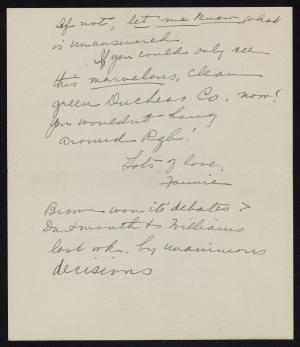 If not, let me know what
is unanswered.
If you could only see
this marvelous, clean
green Duchess Co. now!
you wouldn't hang
around Pgh!
Lots of love,
Fannie
Brown won its debates >
Dartmouth & Williams
last wk. by unanimous
decisions